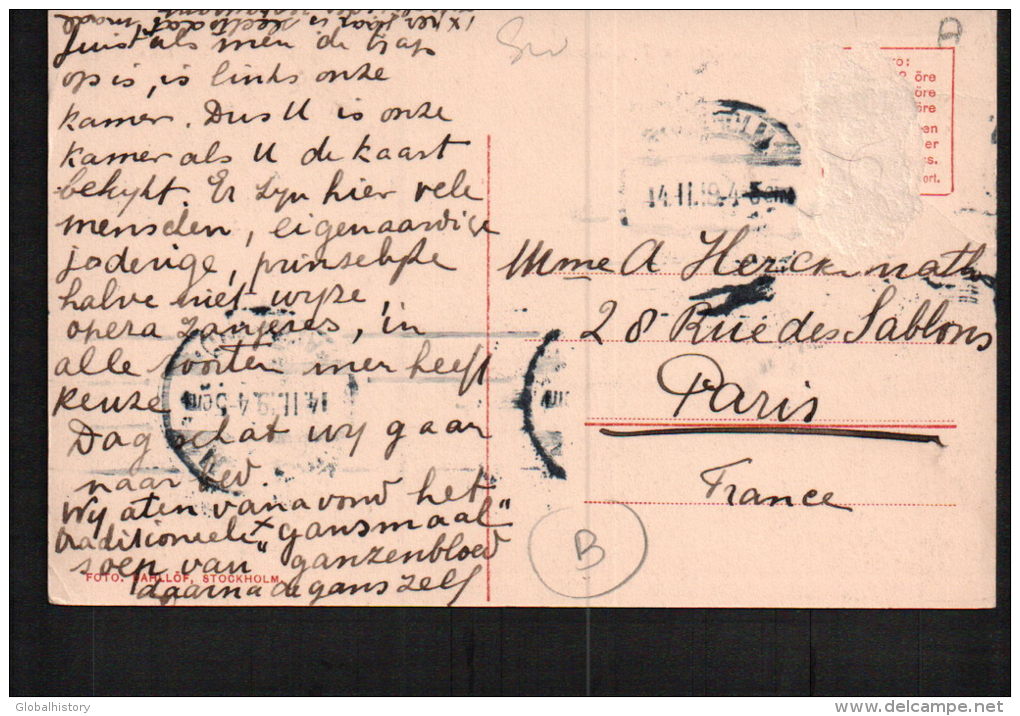 1 x per jaar is slechts dat maal
Juist als men de trap
op is, is links onze
kamer. Dus U is onze
kamer als U de kaart
bekykt. Er zyn hier vele
menschen, eigenaardige
joderige, prinselyke
halve niet wyze
opera zangeres, in
alle soorten men heeft
keuze
Dag schat wy gaan
naar bed.
Wy aten vanavond het
traditioneele x "gansmaal"
soep van "ganzenbloed
daarna de gans zelf
FOTO. DAHLLÖF, STOCKHOLM
öre
öre
öre
14.11.19.4-5em
14.11.19.4-5em
Mme A Herckenrath
28 Rue des Sablons
Paris
France
B
D
Globalhistory
www.delcampe.net